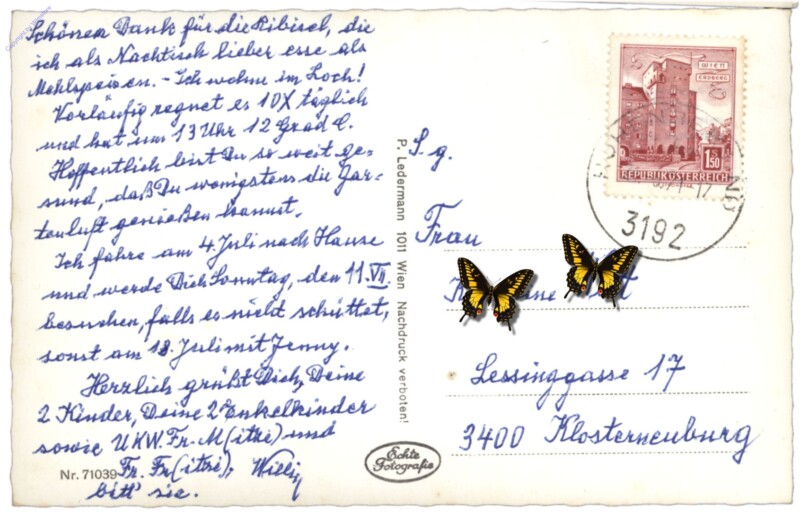 Schönen Dank für die Ribisel, die
ich als Nachtisch lieber esse als
Mehlspeisen. - Ich wohne im Loch!
Vorläufig regnet es 10X täglich
und hat um 13 Uhr 12 Grad C.
Hoffentlich bist Du so weit ge=
sund, daß Du wenigstens die Gar=
tenluft genießen kannst.
Ich fahre am 4. Juli nach Hause
und werde Dich Sonntag, den 11. VII.
besuchen, falls es nicht schüttet,
sonst am 18. Juli mit Jenny.
Herzlich grüßt Dich, Deine
2 Kinder, Deine 2 Enkelkinder
sowie U.K.W. Fr. M(itzi) und
Fr. Fr(itzi), Willi,
bitt' sie.
Nr. 71039
P. Ledermann 1011 Wien Nachdruck verboten!
Echte
Fotografie
WIEN
ERDBERG
1,50
S
REPUBLIK ÖSTERREICH
3192
S. g.
Frau
Lessinggasse 17
3400 Klosterneuburg